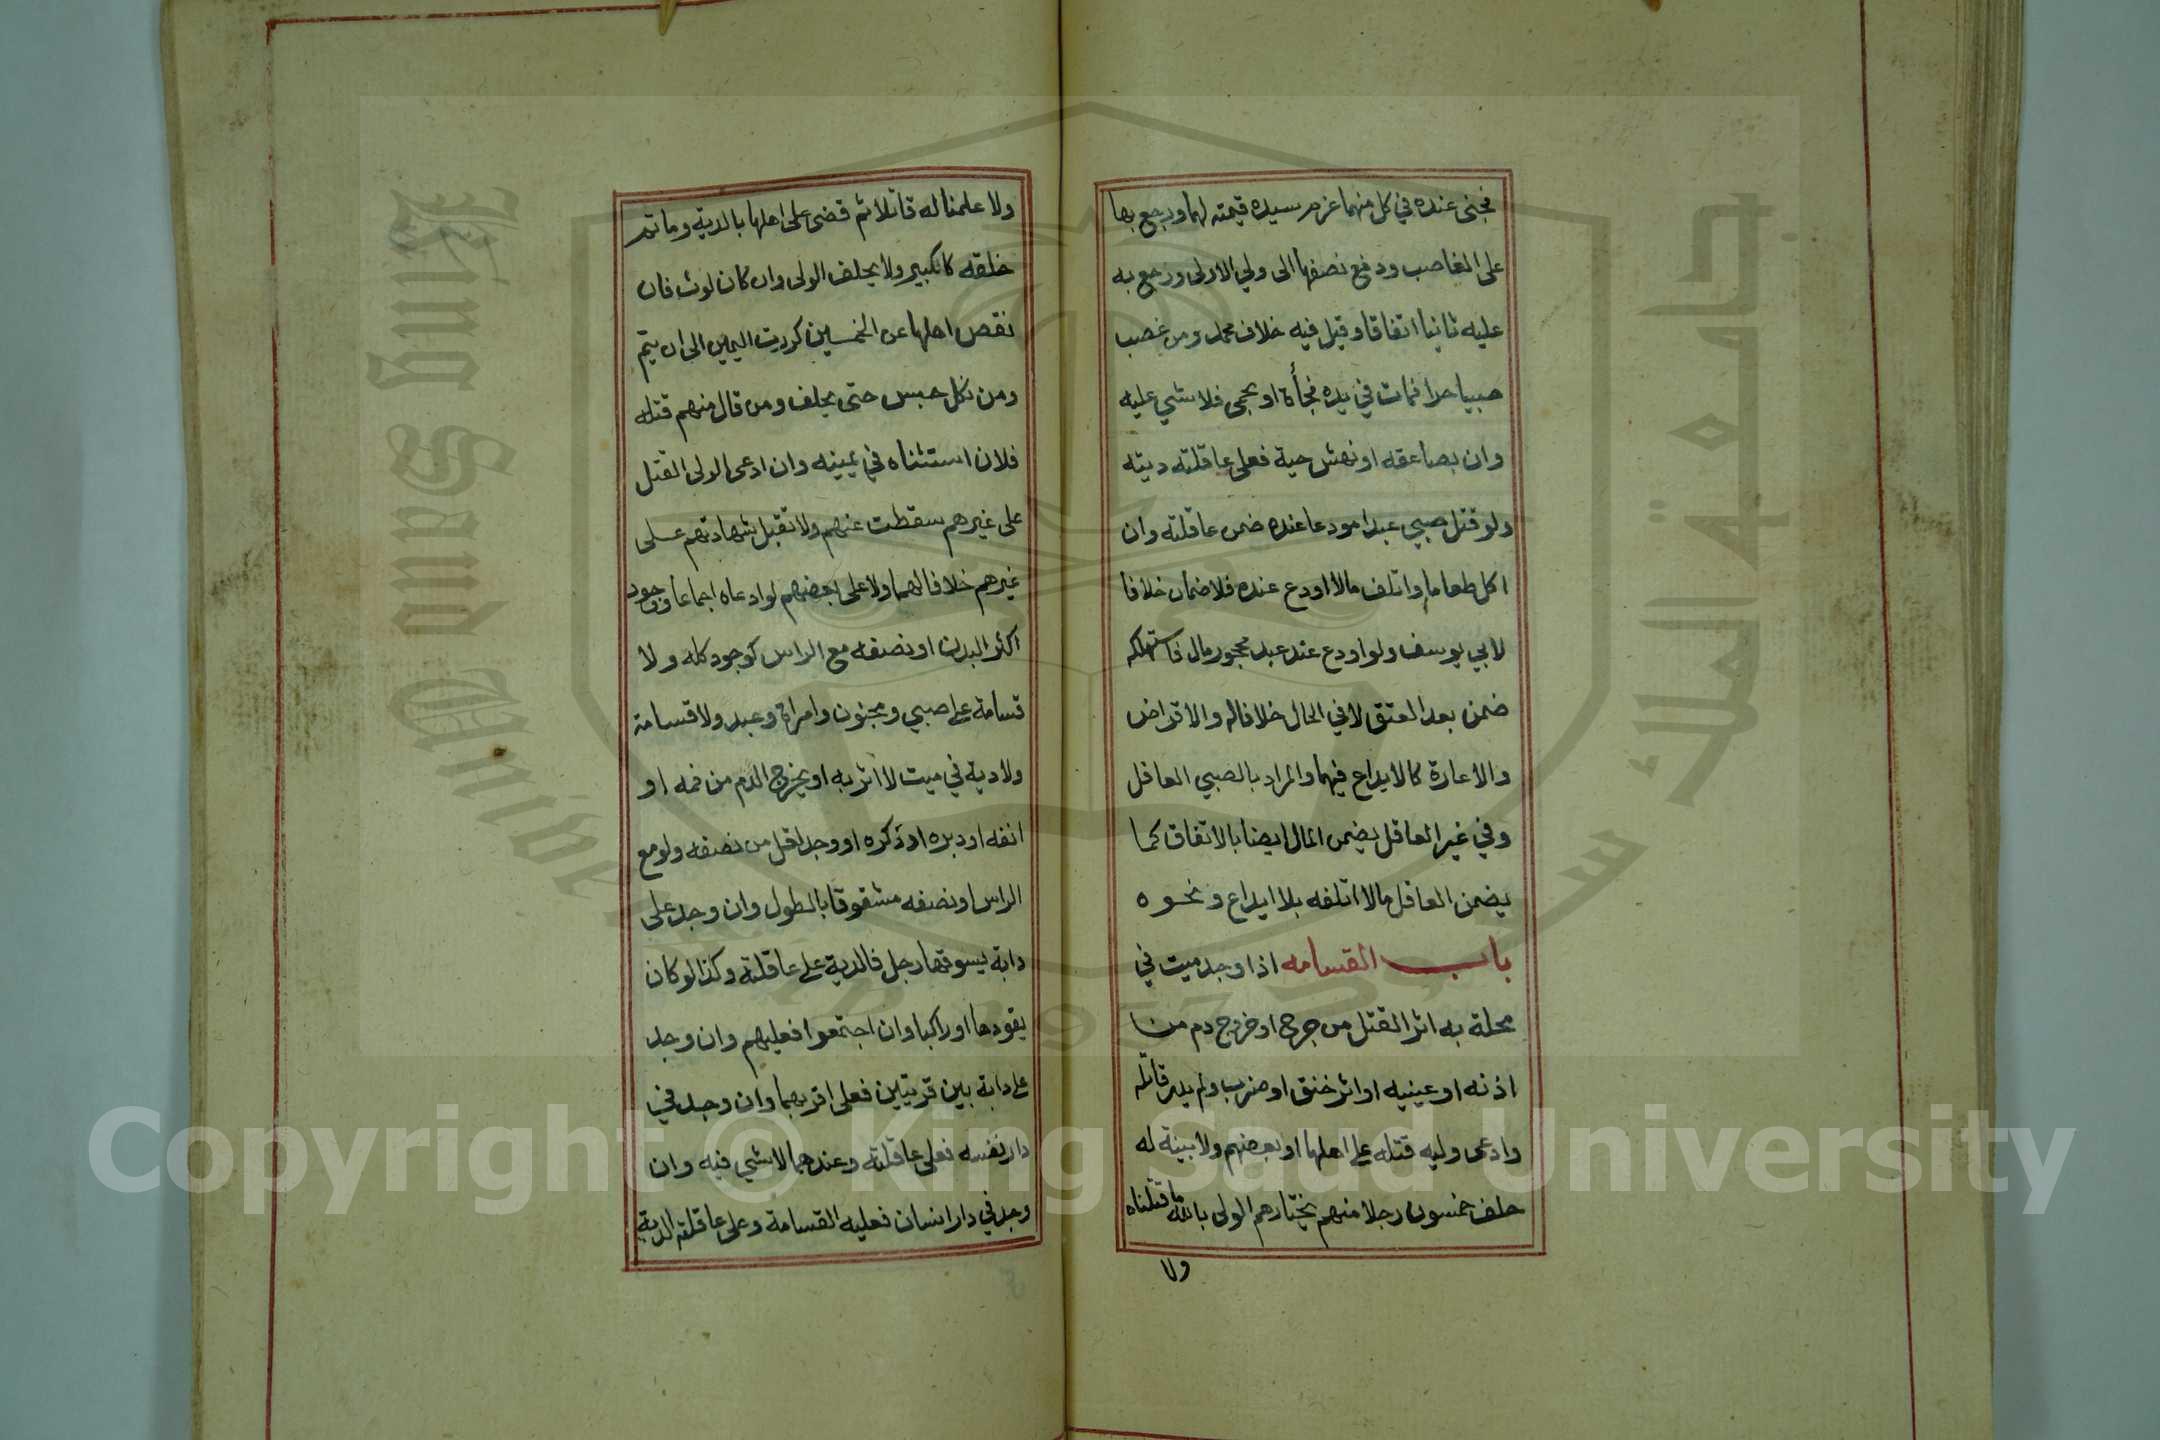 فجنى عنده في كل منهما غرم سيده قيمته لهما ورجع بها
على الغاصب ودفع نصفها الى ولي الاولى ورجع به
عليه ثانيا اتفاقا وقيل فيه خلاف محمد ومن غصب
صبيا حرا فمات في يده فجأة او بحمى فلا شي عليه
وان بصاعقه او نهش حية فعلى عاقلته ديته
ولو قتل صبي عبدا مودعا عنده ضمن عاقلته وان
اكل طعاما واتلف مالا اودع عنده فلا ضمان خلافا
لابي يوسف ولو اودع عند عبد محجور مال فاستهلكه
ضمن بعد العتق لا في الحال خلافا له والاقراض
والاعارة كالايداع فيهما والمراد بالصبي العاقل
وفي غير العاقل يضمن المال ايضا بالاتفاق كما
يضمن العاقل مالا اتلفه بلا ايداع ونحوه
باب القسامه اذا وجد ميت في
محلة به اثر القتل من جرح او خروج دم من
اذنه او عينيه او اثر خنق او ضرب ولم يدر قاتله
وادعى وليه قتله على اهلها او بعضهم ولا بينة له
حلف خمسون رجلا منهم يختارهم الولى بالله ما قتلناه
ولا
ولا علمنا له قاتلا ثم قضى على اهلها بالدية وما تم
خلقه كالكبير ولا يحلف الولى وان كان لوث فان
نقص اهلها عن الخمسين كررت اليمين الى ان يتم
ومن نكل حبس حتى يحلف ومن قال منهم قتله
فلان استثناه في يمينه وان ادعى الولى القتل
على غيرهم سقطت عنهم ولا تقبل شهادتهم على
غيرهم خلافا لهما ولا على بعضهم لو ادعاه اجماعا ووجود
اكثر البدن او نصفه مع الراس كوجود كله ولا
قسامة على صبي ومجنون وامراة وعبد ولا قسامة
ولا دية في ميت لا اثر به او يخرج الدم من فمه او
انفه او دبره او ذكره او وجد اقل من نصفه ولو مع
الراس او نصفه مشقوقا بالطول وان وجد على
دابة يسوقها رجل فالدية على عاقلته وكذا لو كان
يقودها او راكبا وان اجتمعوا فعليهم وان وجد
على دابة بين قريتين فعلى اقربهما وان وجد في
دار نفسه فعلى عاقلته وعندهما لا شي فيه وان
وجد في دار انسان فعليه القسامة وعلى عاقلته الدية
Copyright © King Saud University
King Saud University
جامعة الملك سعود